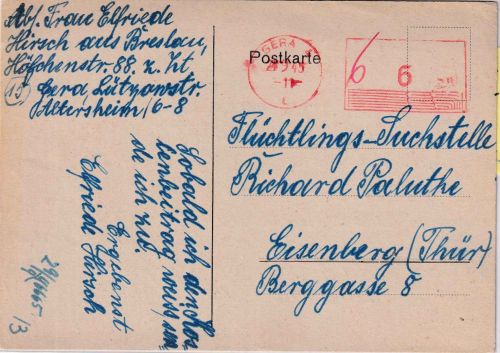 Abs. Frau Elfriede
Hirsch aus Breslau,
Höfchenstr. 88. z. Zt
(15) Gera Lützowstr.
Altersheim/6-8
GERA
45
Postkarte
6 6
Flüchtlings-Suchstelle
Richard Paluthe
Eisenberg (Thür)
Berggasse 8
Sobald ich den Kos-
tenbeitrag weiß, sen-
de ich zu.
Ergebenst
Elfriede Hirsch
/3